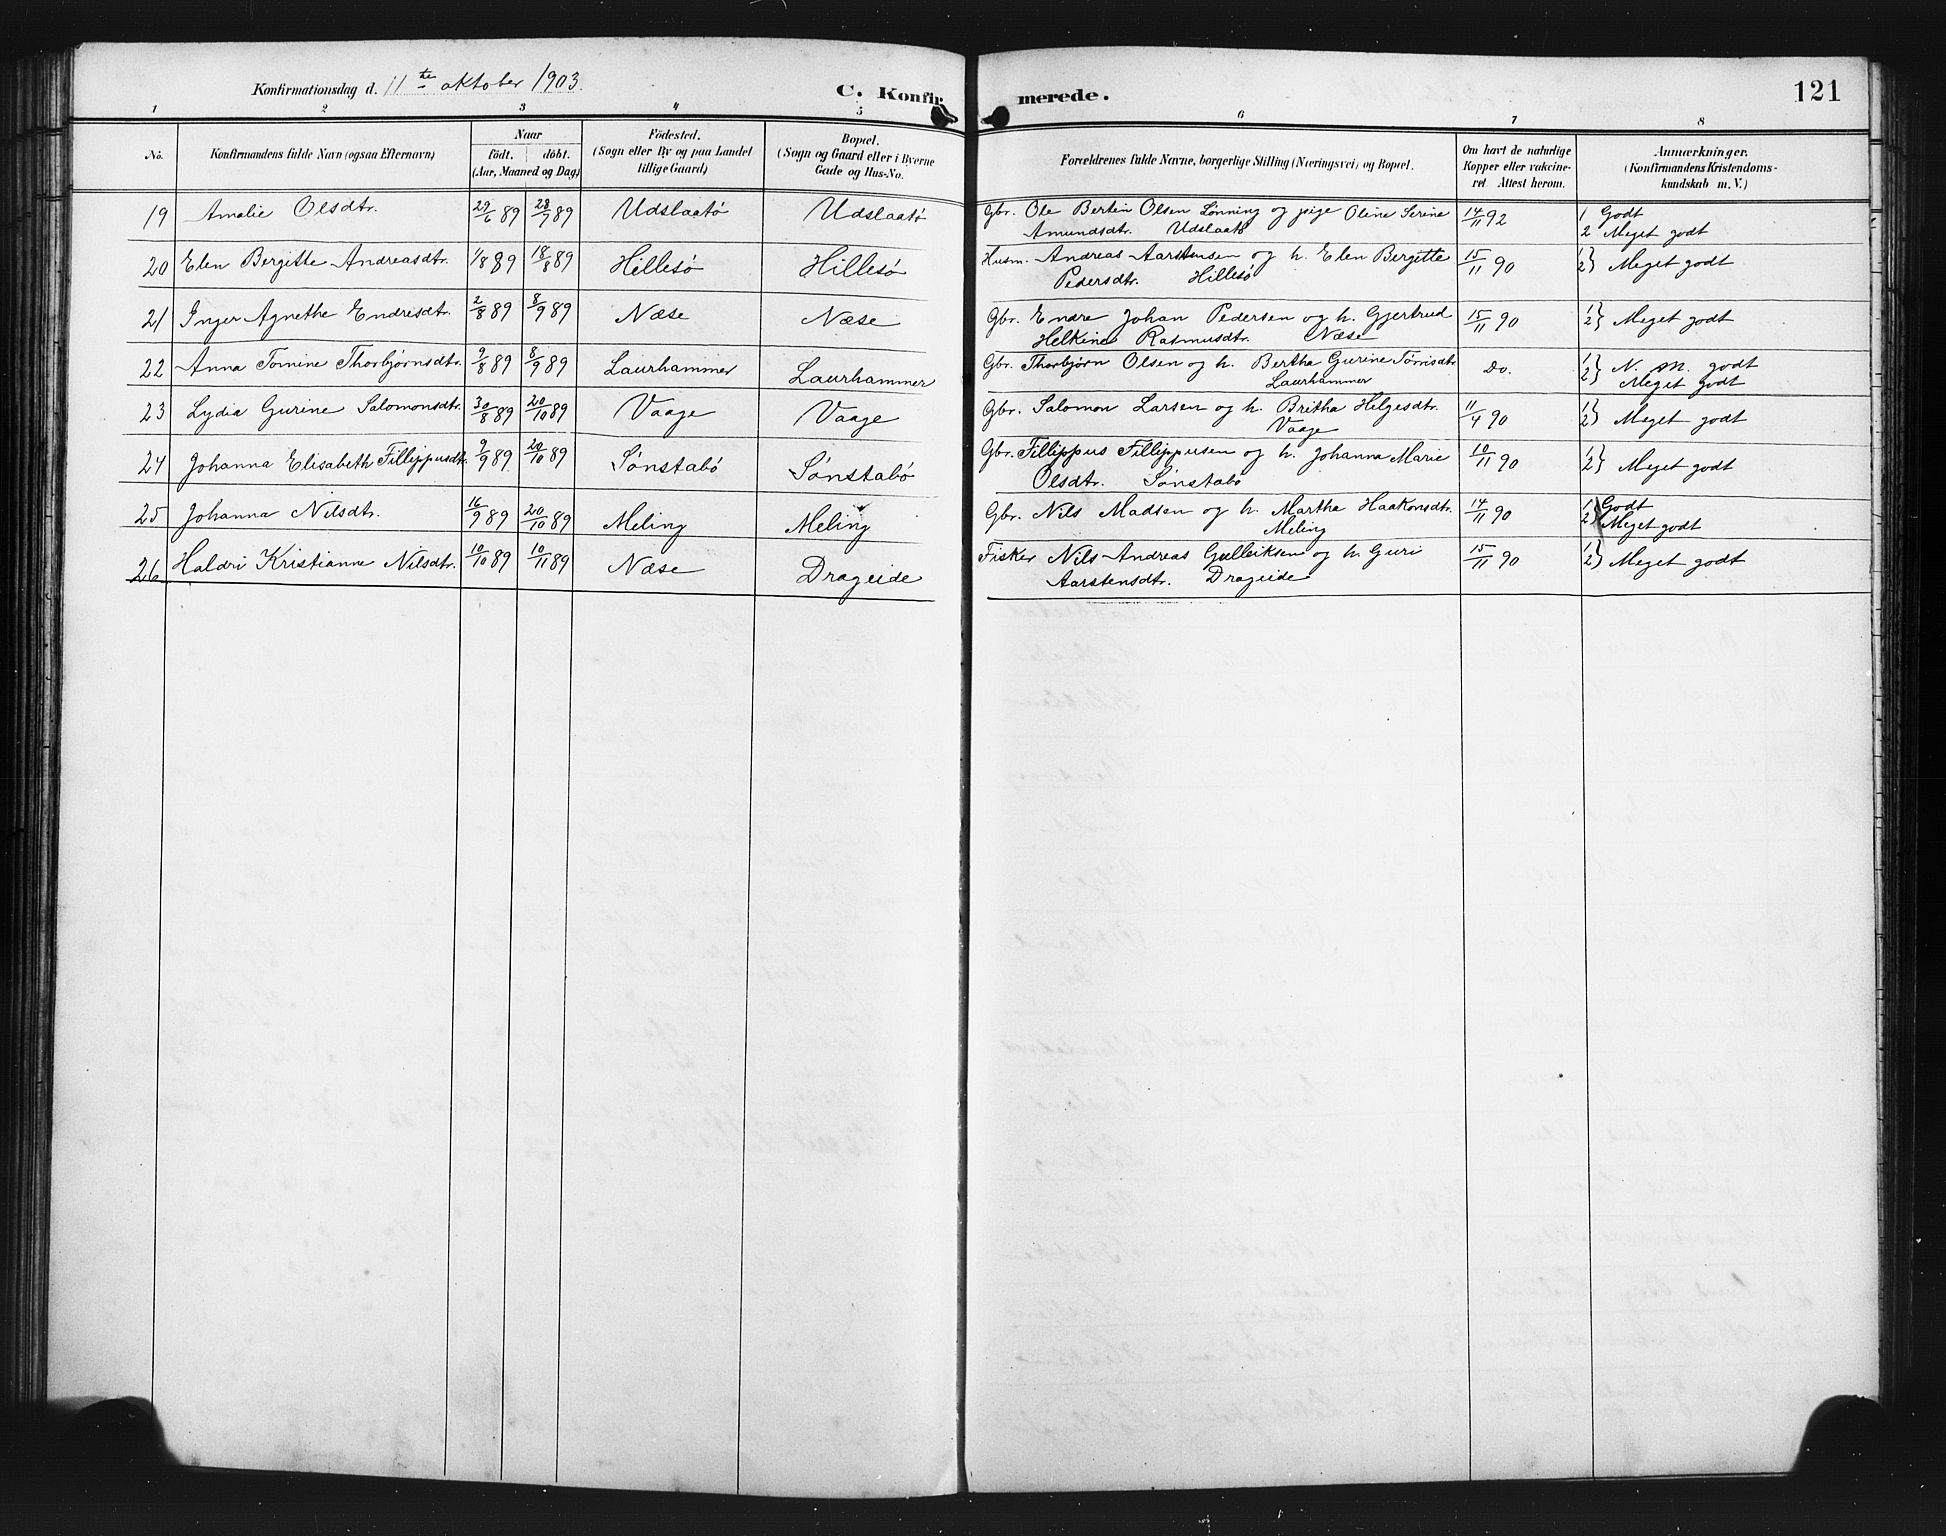 Konfirmationsdag d. 11te oktober 1903.
C. Konfirmerede.
121
1 2 3 4 5 6 7 8
No. Konfirmandens fulde Navn (ogsaa Efternavn) Naar födt. döbt. (Aar, Maaned og Dag) Födested. (Sogn eller By og paa Landet tillige Gaard) Bopæl. (Sogn og Gaard eller i Byerne Gade og Hus-No. Forældrenes fulde Navne, borgerlige Stilling (Næringsvei) og Bopæl. Om havt de naturlige Kopper eller vakcineret Attest herom. Anmærkninger. (Konfirmandens Kristendomskundskab m. V.)
19 Amalie Olsdtr. 29/6 89 28/7 89 Udslaatö Udslaatö Gbr. Ole Bertin Olsen Lönning og pige Oline Serine 14/11 92 1 Godt
Amundsdtr. Udslaatö 2 Meget godt
20 Elen Bergitte Andreasdtr. 1/8 89 18/8 89 Hillesö Hillesö Husm. Andreas Aarstensen og h. Elen Bergitte 15/11 90 1 2} Meget godt
Pedersdtr. Hillesö
21 Inger Agnethe Endresdtr. 2/8 89 8/9 89 Næse Næse Gbr. Endre Johan Pedersen og h. Gjertrud 15/11 90 1 2} Meget godt
Helkine Rasmusdtr. Næse
22 Anna Tomine Thorbjørnsdtr. 9/8 89 8/9 89 Laurhammer Laurhammer Gbr. Thorbjørn Olsen og h. Bertha Gurine Törrisdtr. Do. 1 2} N. M. godt
Laurhammer Meget godt
23 Lydia Gurine Salomonsdtr. 30/8 89 20/10 89 Vaage Vaage Gbr. Salomon Larsen og h. Britha Helgesdtr. 11/4 90 1 2} Meget godt
Vaage
24 Johanna Elisabeth Fillippusdtr. 9/9 89 20/10 89 Sönstabö Sönstabö Gbr. Fillippus Fillippusen og h. Johanna Marie 10/11 90 1 2} Meget godt
Olsdtr. Sönstabö
25 Johanna Nilsdtr. 16/9 89 20/10 89 Meling Meling Gbr. Nils Madsen og h. Martha Haakonsdtr. 14/11 90 1 Godt
Meling 2 Meget godt
26 Haldri Kristianne Nilsdtr. 10/10 89 10/11 89 Næse Drageide Fisker Nils Andreas Gulleiksen og h. Guri 15/11 90 1 2} Meget godt
Aarstensdtr. Drageide